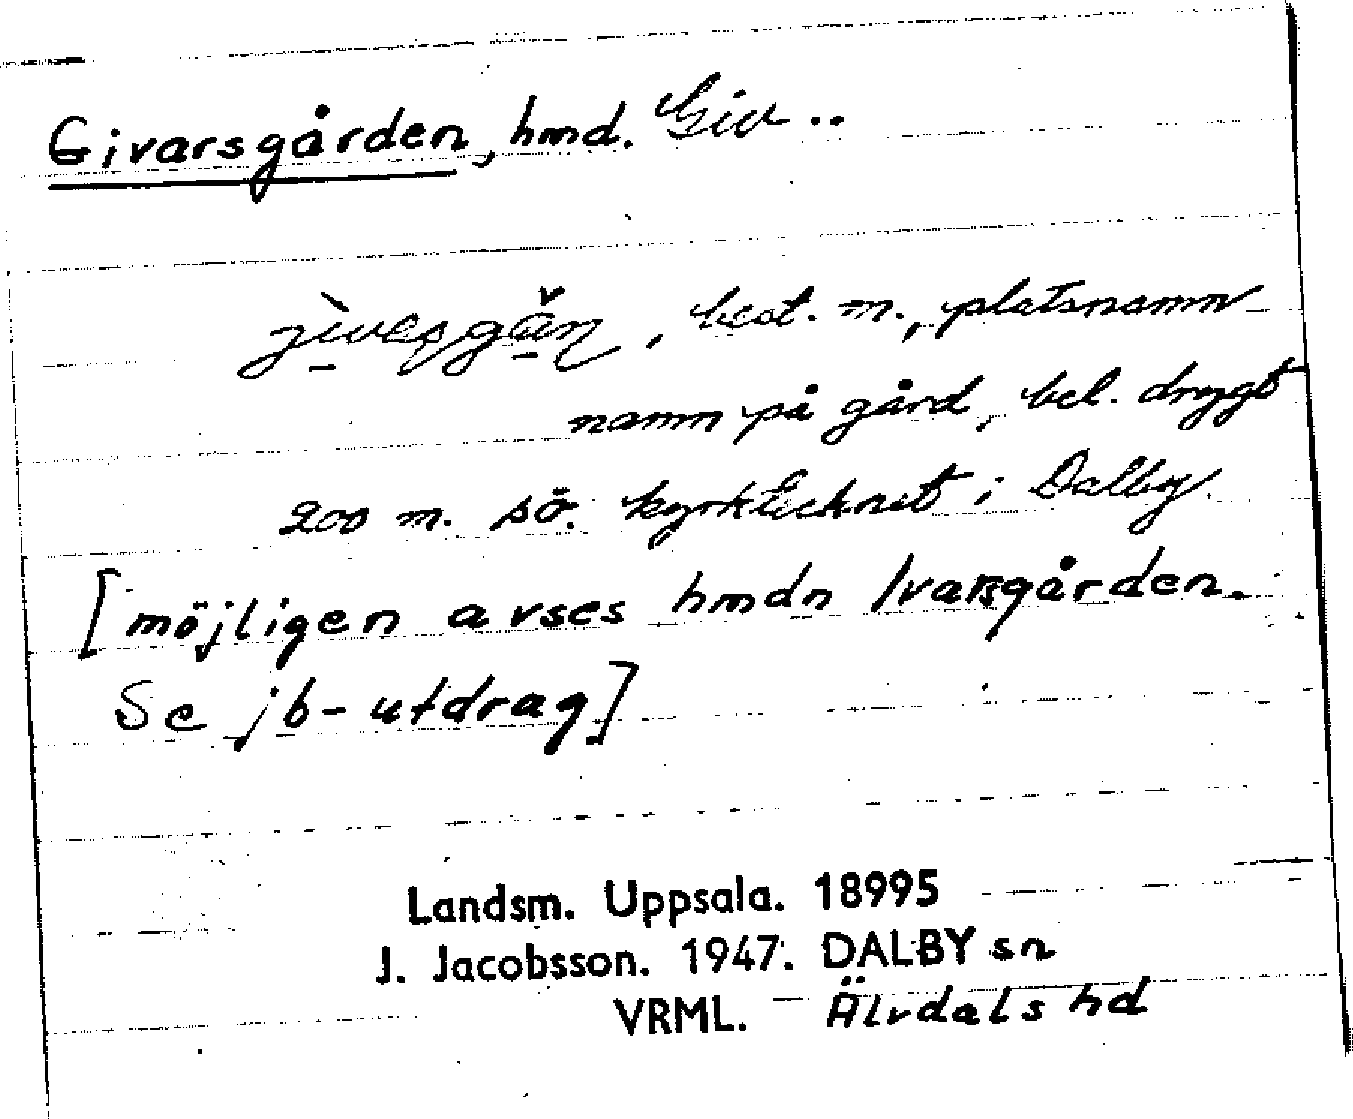 Givarsgården, hmd. Giv ..
best. m., platsnamn
namn på gård, bel. drygt
200 m. sö. kyrktecknet i Dalby.
[möjligen avses hmdn Ivarsgården.
Se jb-utdrag]
Landsm. Uppsala. 18995
J. Jacobsson. 1947. DALBY sn
VRML. Älvdals hd